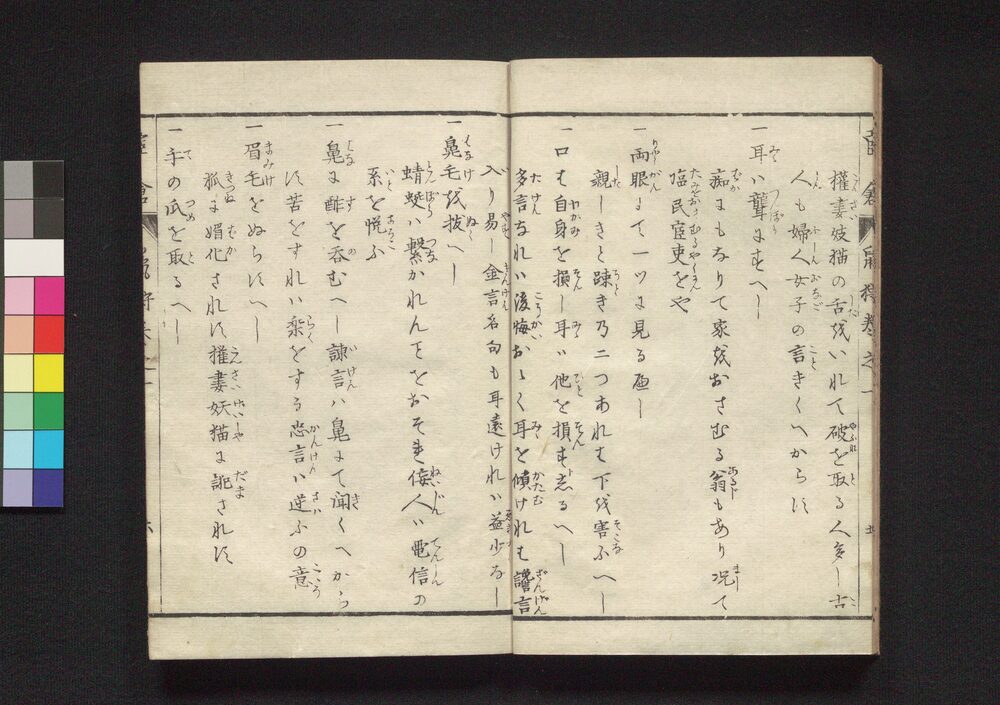 權妻妓猫の舌にいれて破を取る人多し古
人も婦人女子の言きくへからす
一耳ハ聾にすへし
痴にもなりて家をおさむる翁もあり況て
臨民宦吏をや
一両眼にて一ツに見る
親しきと疎き乃二つあれは下を害ふへし
一口は自身を損し耳ハ他を損すと志るへし
多言なれハ後悔おゝく耳を傾けれは讒言
入り易し金言名句も耳遠けれハ益少なし
一鼻毛を抜へし
蜻蜒ハ繋かれんことをおそれ侫人ハ電信の
系を悦ふ
一鼻にて酢を呑むへし諫言ハ鼻にて聞くへからす
苦をすれハ楽をする忠言ハ逆ふの意
一眉毛をぬらすへし
狐に媚化されす權妻妖猫に訛されす
一手の爪を取るへし